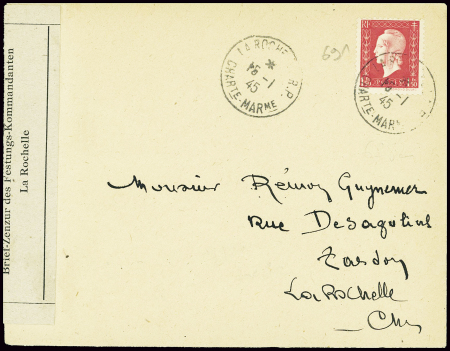 Brief-Zenzur des Festungs-Kommandanten
La Rochelle
LA ROCHE
*
16-1
45
R.P.
CHARTE-MARME
691
RF
16-1
45
CHARTE-MARME
Monsieur Rémy Guynemer
Rue Desaguliers
Tasdon
La Rochelle